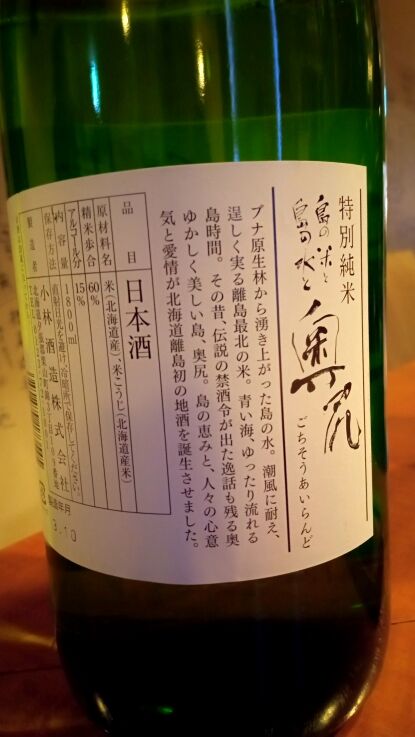 特別純米
島の米と
島の水と
奥尻
ごちそうあいらんど
ブナ原生林から湧き上がった島の水。潮風に耐え、
逞しく実る離島最北の米。青い海、ゆったり流れる
島時間。その昔、伝説の禁酒令が出た逸話も残る奥
ゆかしく美しい島、奥尻。島の恵みと、人々の心意
気と愛情が北海道離島初の地酒を誕生させました。
品目 日本酒
原材料名 米(北海道産)、米こうじ(北海道産米)
精米歩合 60%
アルコール分 15%
内容量 1800ml
保存方法 直射日光を避け冷暗所で保存してください
製造者 小林酒造株式会社
製造年月
9.10